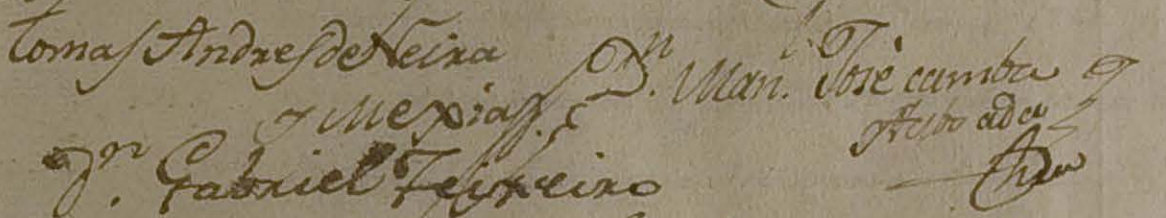 tomas Andres de Neira
y Mexia
Dn. Man. José camba y
Taboada
Dn. Gabriel Teixeiro